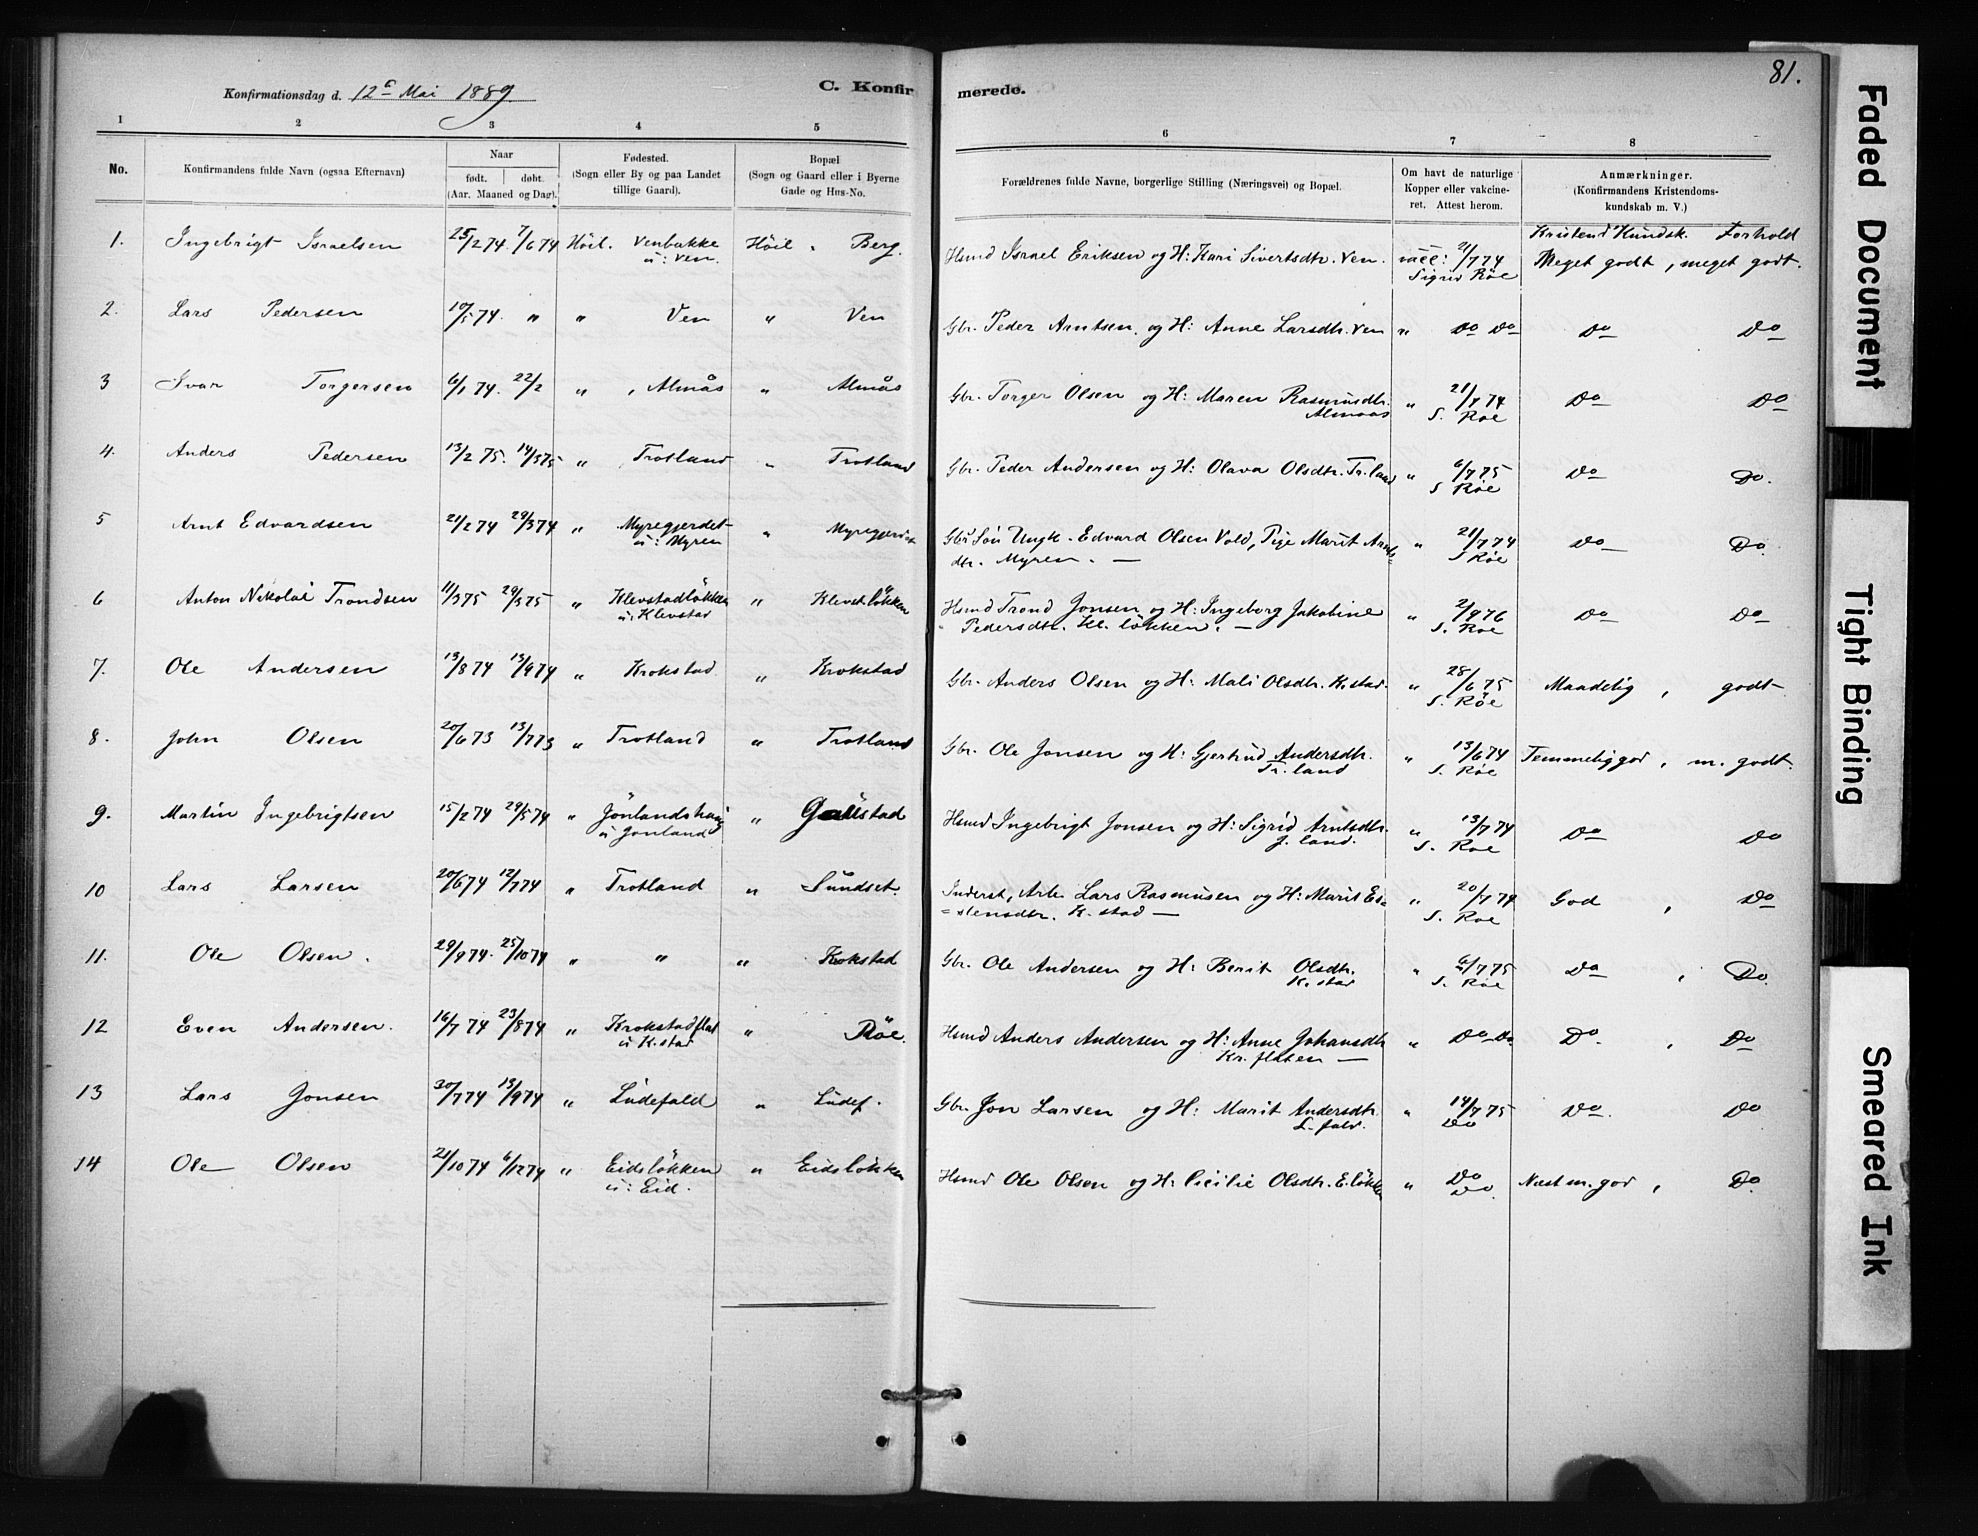 81.
Konfirmationsdag d. 12te Mai 1889. C. Konfirmerede.
1 2 3 4 5 6 7 8
No. Konfirmandens fulde Navn (ogsaa Efternavn) Naar født. døbt. (Aar. Maaned og Dag). Fødested. (Sogn eller By og paa Landet tillige Gaard). Bopæl (Sogn og Gaard eller i Byerne Gade og Hus-No. Forældrenes fulde Navne, borgerlige Stilling (Næringsvei) og Bopæl. Om havt de naturlige Kopper eller vakcineret. Attest herom. Anmærkninger. (Konfirmandens Kristendomskundskab m. V.)
Kristend Kundsk. Forhold
1. Ingebrigt Israelsen 25/2 74. 7/6 74 Höil. Venbakke Höil " Berg. Hsmd Israel Eriksen og H: Kari Sivertsdtr. Ven. vacc: 21/7 74 Meget godt, meget godt.
u: Ven. Sigrid Röe
2. Lars Pedersen 10/5 74. " " Ven " Ven Gbr. Peder Arntsen og H: Anne Larsdtr. Ven " Do Do Do Do
3 Ivar Torgersen 6/1 74. 22/2 " Almås " Almås Gbr. Torger Olsen og H: Maren Rasmusdtr. " 21/7 74 Do Do
Almaas S. Röe
4. Anders Pedersen 13/2 75. 14/3 75 " Trotland " Trotland Gbr. Peder Andersen og H: Olava Olsdtr. Tr.land " 6/7 75 Do Do.
S Röe
5 Arnt Edvardsen 21/2 74 29/3 74 " Myregjerdet " Myregjerdet Gbr Sön Ungk. Edvard Olsen Vold, Pige Marit Arnts= " 21/7 74 Do Do.
u: Myren dtr. Myren. — S Röe
6 Anton Nikolai Trondsen 11/3 75 29/3 75 " Klevstadlökken " Klevst.lökken Hsmd Trond Jonsen og H: Ingeborg Jakobine " 2/9 76 Do Do
u: Klevstad Pedersdtr. Kl. lökken. — S. Röe
7. Ole Andersen 13/8 74 13/9 74 " Krokstad. " Krokstad Gbr. Anders Olsen og H: Mali Olsdtr. K.stad. " 28/6 75 Maadelig, godt
S. Röe
8. John Olsen 20/6 73 13/7 73 " Trotland " Trotland Gbr. Ole Jonsen og H: Gjertrud Andersdtr. " 13/6 74 Temmelig god, m. godt.
Tr. land S. Röe
9. Martin Ingebrigtsen 15/2 74 29/5 74 " Jönlandshaug " Gullstad Hsmd Ingebrigt Jonsen og H: Sigrid Arntsdtr. " 13/7 74 Do Do
u Jonland J. land. S. Röe
10 Lars Larsen 20/6 74 12/7 74 " Trotland " Sundset. Inderst, Arb. Lars Rasmusen og H: Marit Es= " 20/7 74 God, Do
=stensdtr. K. stad — S. Röe
11. Ole Olsen. 29/9 74. 25/10 74 " " " Krokstad Gbr. Ole Andersen og H: Berit Olsdtr. " 6/7 75 Do, Do.
K. stad S. Röe
12 Even Andersen. 16/7 74 23/8 74 " Krokstadflat " Röe. Hsmd Anders Andersen og H: Anne Johansdtr " Do Do Do., Do
u K.stad Kr. flaten —
13 Lars Jonsen 30/7 74 13/9 74 " Ludefald " Ludef. Gbr. Jon Larsen og H: Marit Andersdtr. " 14/7 75 Do. Do
L. fald. Do
14 Ole Olsen 21/10 74 6/12 74 " Eidslökken " Eidslökken Hsmd Ole Olsen og H: Cicilie Olsdtr. E.lökken " Do Næst m. god, Do.
u: Eid. Do.
Faded Document
Tight Binding
Smeared Ink